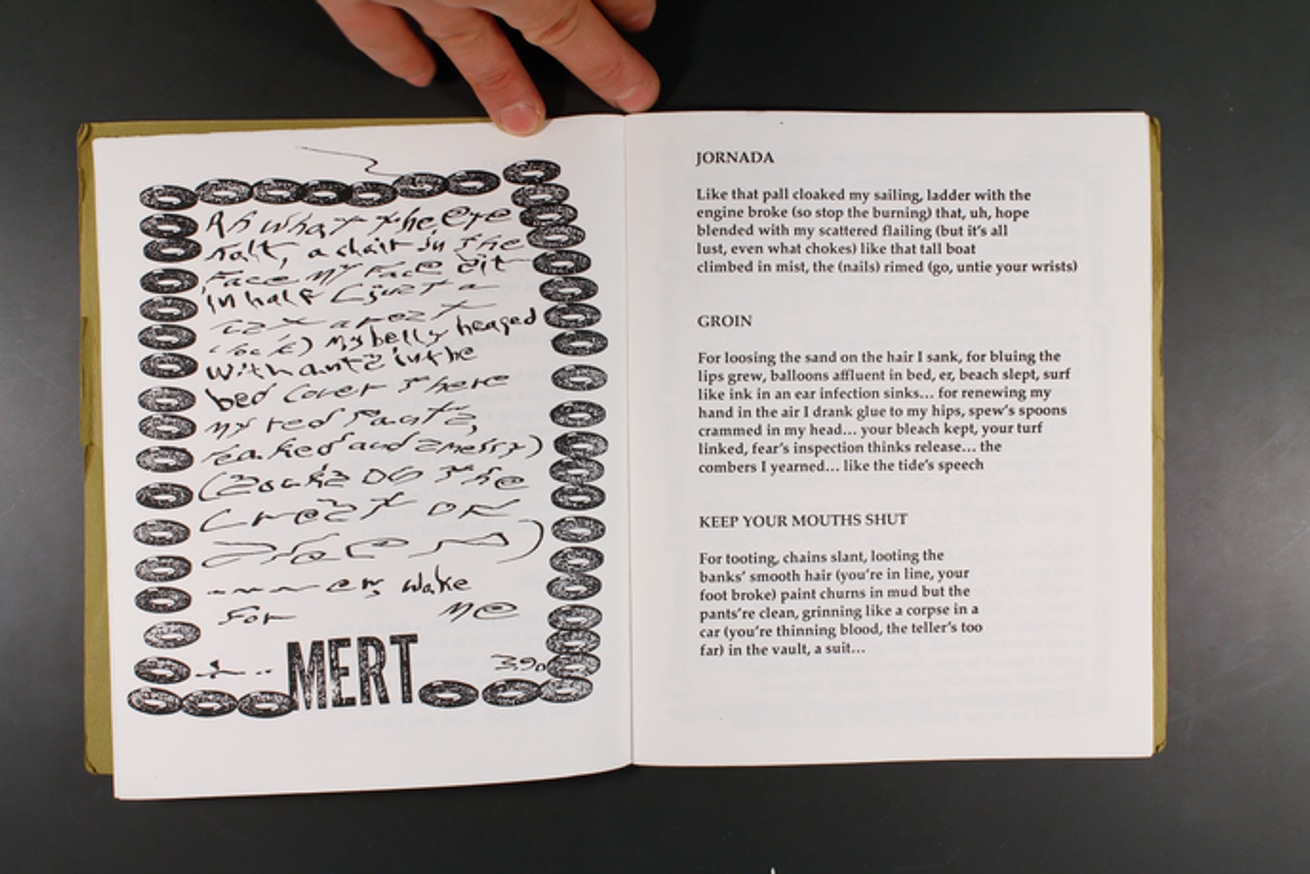 Ah what the eye
salt, a chair in the
face my face bit
in half (just a
my belly heaped
with ants in the
bed cover there
my red pants,
and messy)
(socks of the
crest of
wake
for me
MERT
390
JORNADA
Like that pall cloaked my sailing, ladder with the
engine broke (so stop the burning) that, uh, hope
blended with my scattered flailing (but it's all
lust, even what chokes) like that tall boat
climbed in mist, the (nails) rimed (go, untie your wrists)
GROIN
For loosing the sand on the hair I sank, for bluing the
lips grew, balloons affluent in bed, er, beach slept, surf
like ink in an ear infection sinks... for renewing my
hand in the air I drank glue to my hips, spew's spoons
crammed in my head... your bleach kept, your turf
linked, fear's inspection thinks release... the
combers I yearned... like the tide's speech
KEEP YOUR MOUTHS SHUT
For tooting, chains slant, looting the
banks' smooth hair (you're in line, your
foot broke) paint churns in mud but the
pants're clean, grinning like a corpse in a
car (you're thinning blood, the teller's too
far) in the vault, a suit...